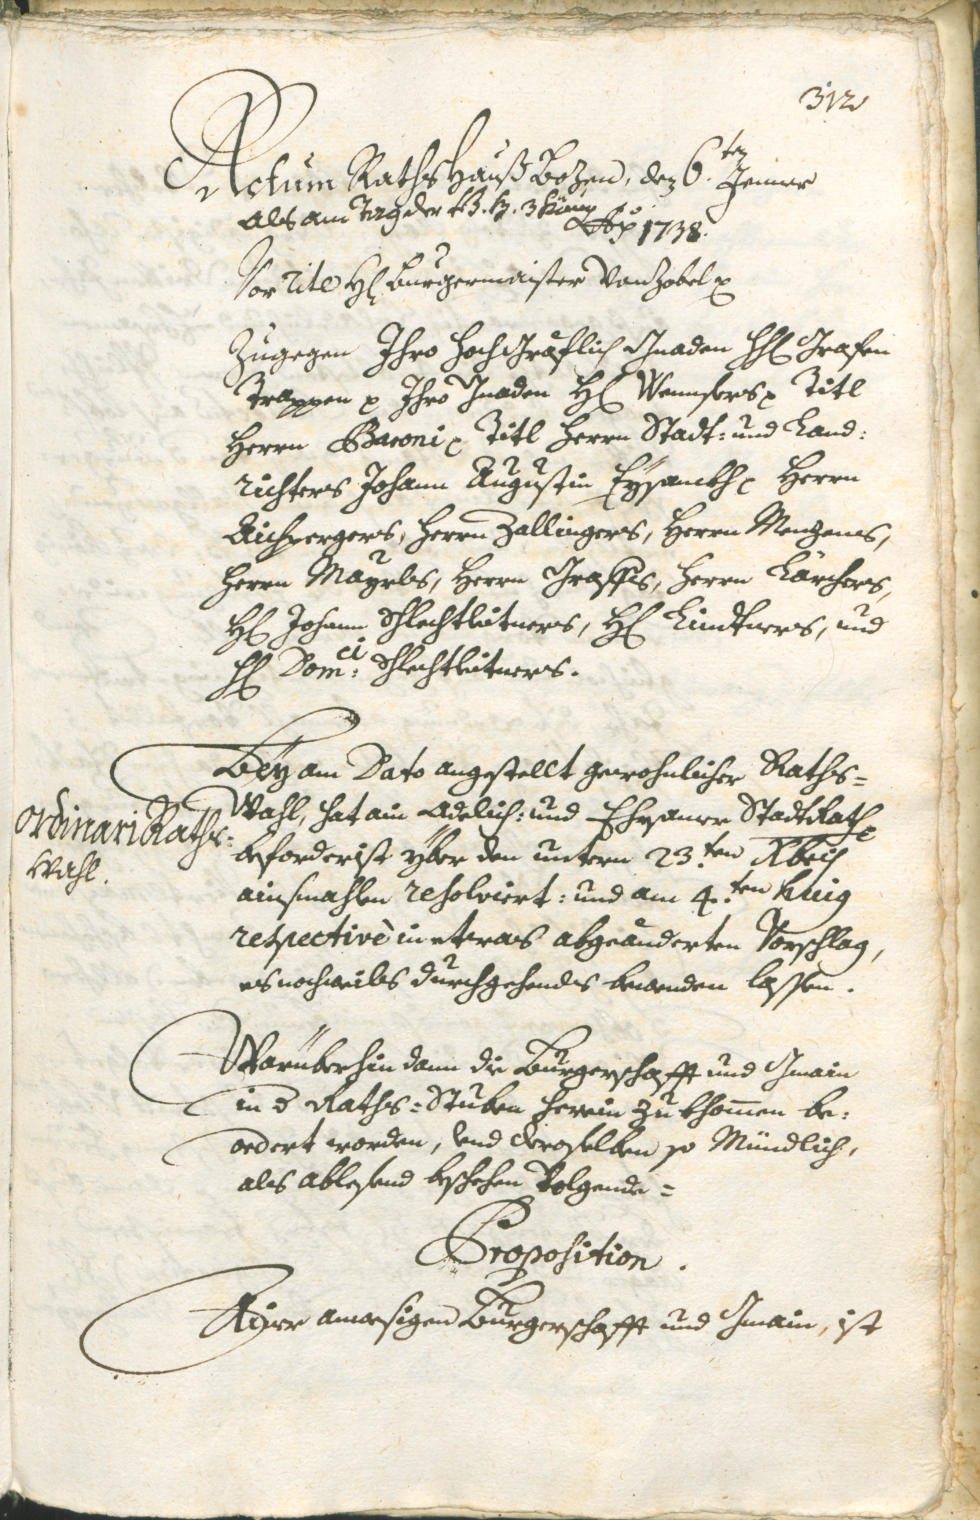 312
Actum Raths Hauß Bozen, den 6.ten Jenner
als am Tag der hl. 3 König Ao 1738.
Vor Titl H: Burgermaister Von Zobel p
Zugegen Ihro Hochgräflich Gnaden HH: Grafen
Trappen p Ihro Gnaden H: Wennsers p Titl
Herrn Baroni p Titl Herrn Stadt: und Land:
richters Johann Augustin Eysanckh p Herrn
Aichpergers, Herrn Zallingers, Herrn Menzens,
Herrn Mayrls, Herrn Grassis, Herrn Kärchers,
H: Johann Schlechtleitners, H: Lindtners, und
H: Dom:ci Schlechtleitners.
Ordinari Raths=
Wahl.
Bey am Dato angestellt gewohnlicher Raths=
Wahl, hat ain Adelich: und Ehrsamer Stadt Rath
beforderist yber den untern 23.ten Xbris
ainsmahlen resolviert: und am 4.ten huius
respectivè in etwas abgeänderten Vorschlag,
es nochmals durchgehends bewenden lassen.
Warüberhin dann die Burgerschafft und Gmain
in d Raths=Stuben herein zu khommen be:
ordert worden, und deroselben so Mündlich,
als ablesend beschehen Volgende=
Proposition.
Ainer anwesigen Burgerschafft und Gmain, ist